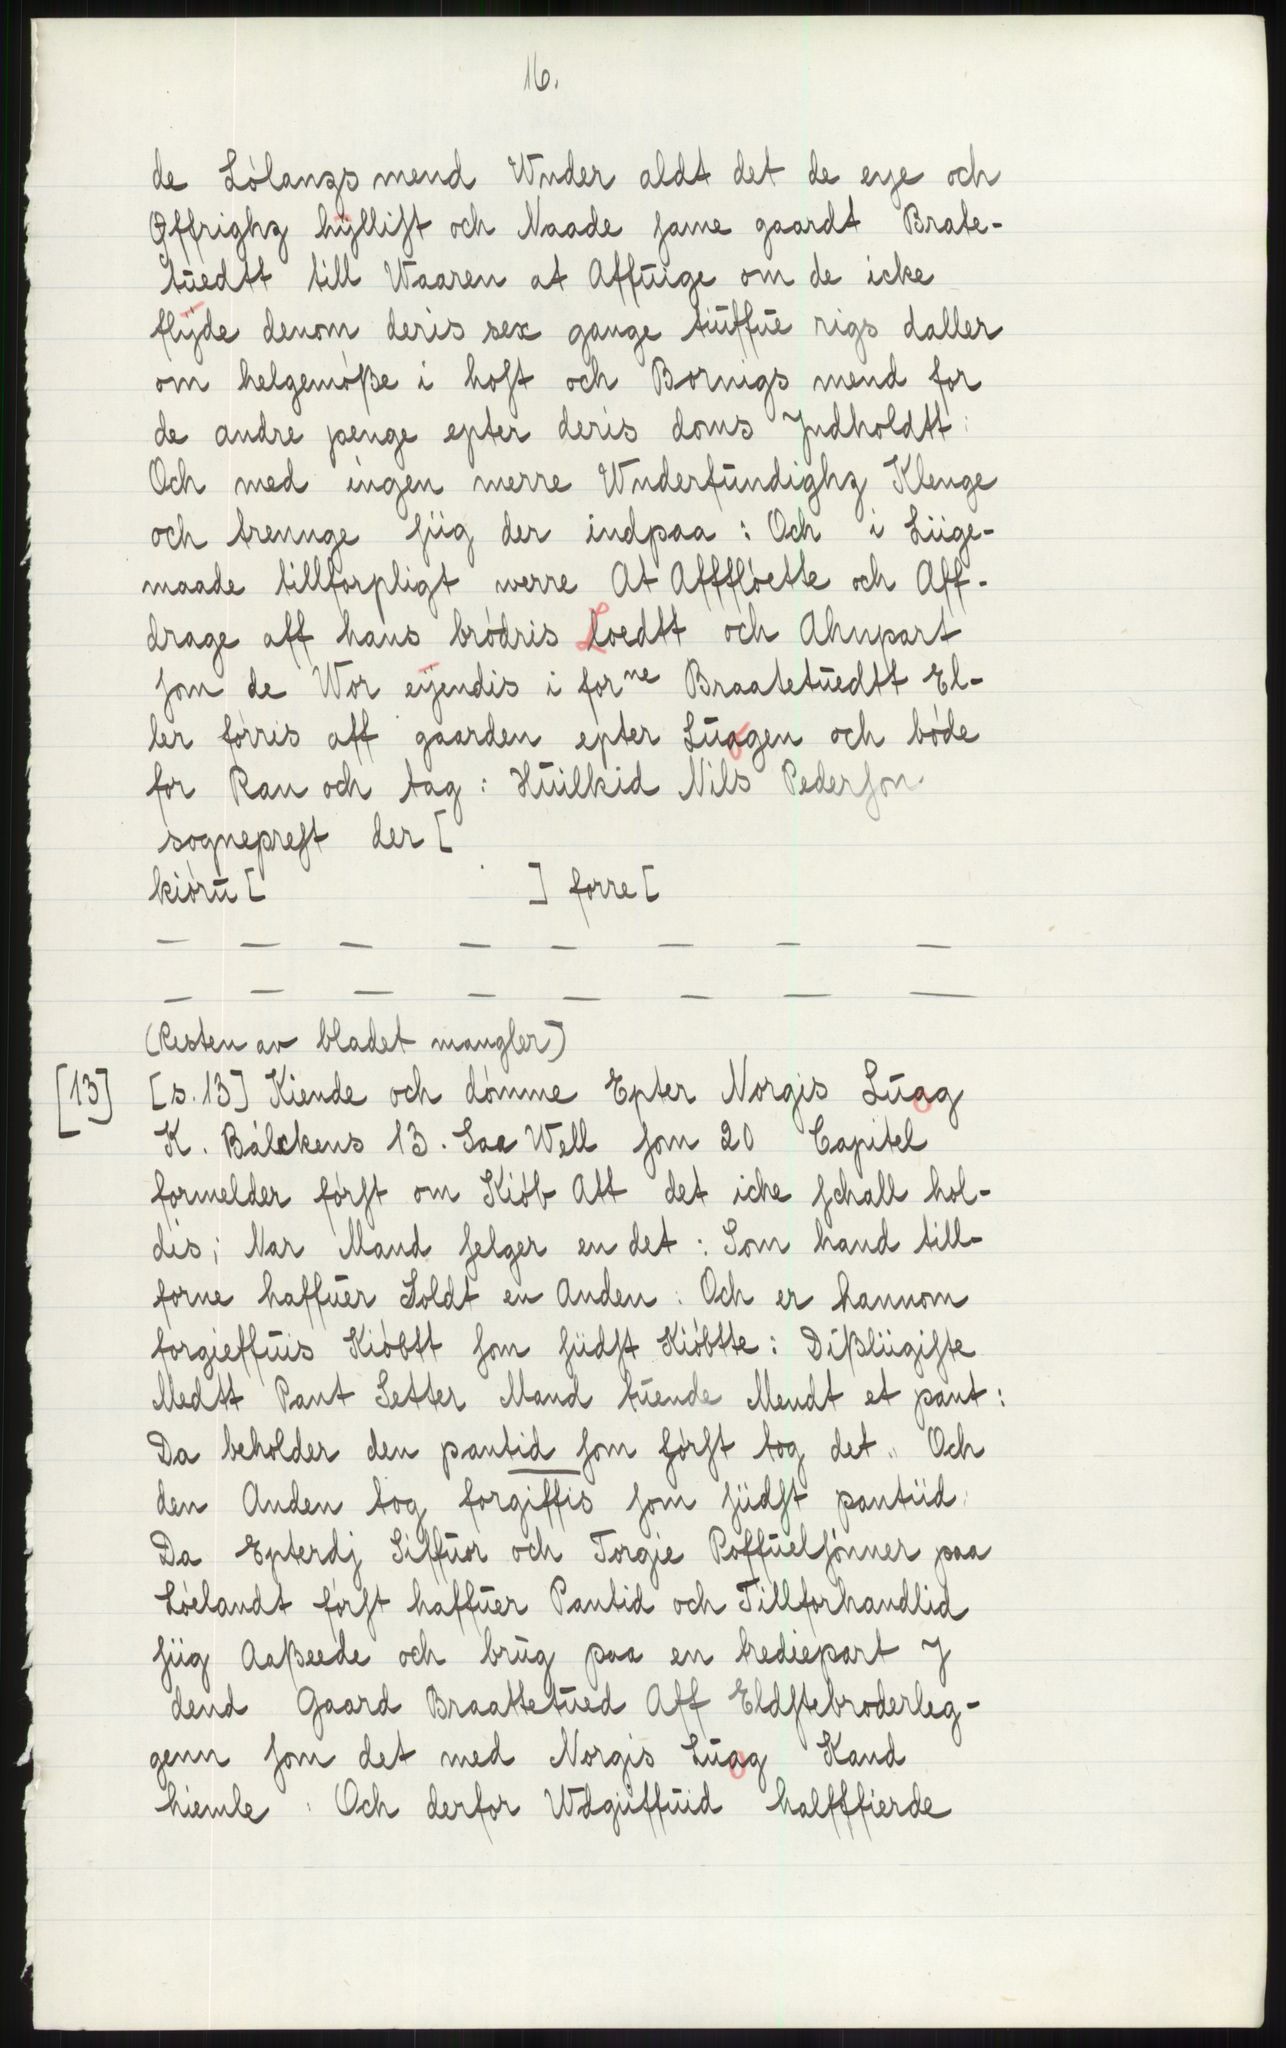 16.
de Lòlangs mend Wnder aldt det de eye och
Offrighz hÿllist och Naade same gaardt Brate-
tuedtt till Waaren at Affuige om de icke
flÿde denom deris sex gange tiuffue rigs daller
om helgemòße i host och Bornigs mend for
de andre penge epter deris doms Jndholdtt:
Och med ingen merre Wnderfundighz Klenge
och trennge siig der indpaa : Och i Liige-
maade tillforpligt werre At Affflòette och Aff-
drage aff hans brodris Loedtt och Ahnpart
som de Wor eÿendis i forne Braatetuedtt El-
ler fòrris aff gaarden epter Luagen och bòde
for Ran och tag : Huilkid Nils Pederson
sogneprest der [
kiòru [ ] forre [
— — — — — — — —
— — — — — — — —
(Resten av bladet mangler)
[13] [s. 13] Kiende och dòmme Epter Norgis Luag
K. Bálckens 13. Saa Well som 20 Capitel
formelder fòrst om Kiòb Att det icke schall hol-
dis; Nar Mand selger en det : Som hand till-
forne haffuer Soldt en Anden : Och er hannom
forgieffuis Kiòbtt som siidst Kiòbtte : Dißliigiste
Medtt Pant Setter Mand tuende Mendt et pant :
Da beholder den pantid som fòrst tog det. Och
den Anden tog forgiffis som siidst pantiid:
Da Epterdj Siffuor och Torgie Poffuelsònner paa
Lòelandt fòrst haffuer Pantid och Tillforhandlid
siig Aaßeede och brug paa en trediepart J
dend Gaard Braattetued Aff Eldstebroderleg-
genn som det med Norgis Luag Kand
hiemle : Och derfor Wdgiuffuid halfffierde